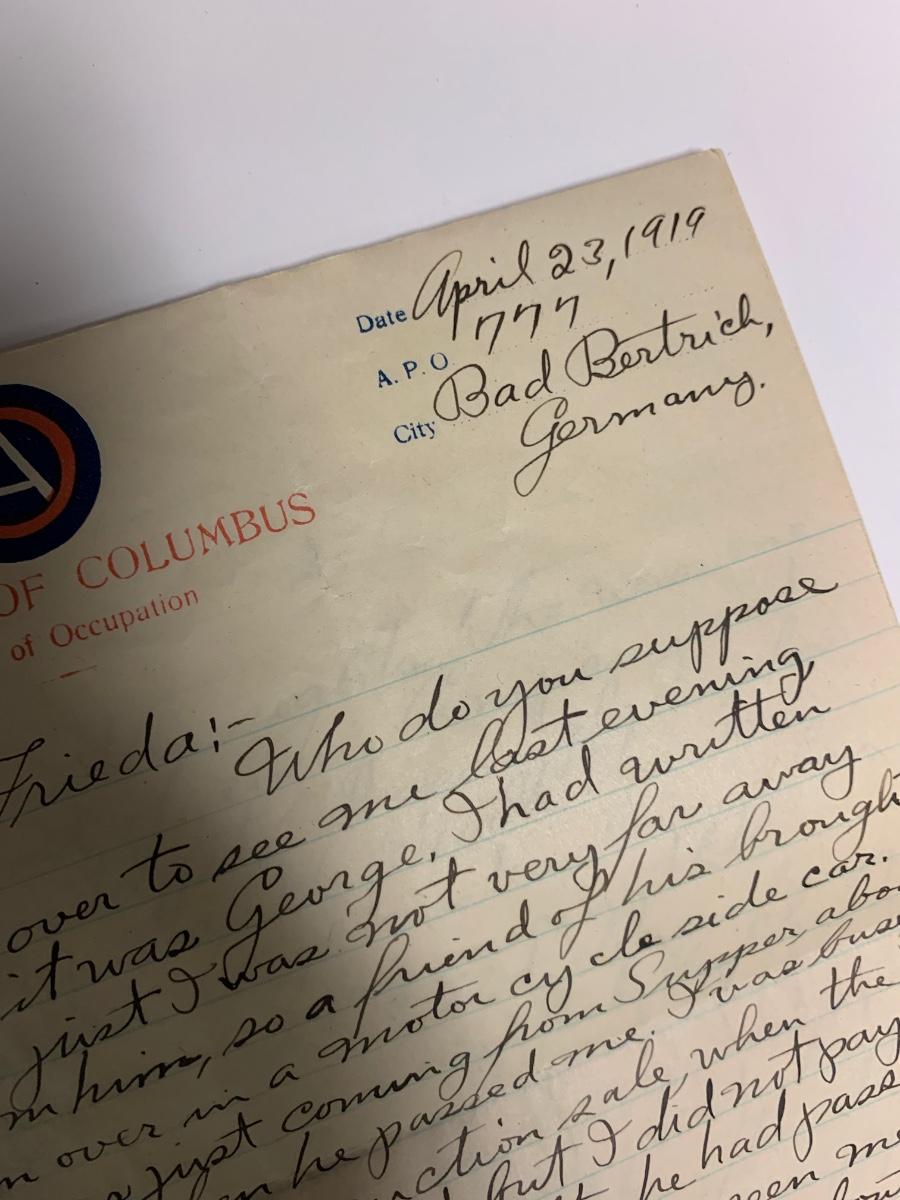 Date April 23, 1919
A. P. O. 777
City Bad Bertrich,
Germany.
A
OF COLUMBUS
of Occupation
Frieda:-
Who do you suppose
over to see me last evening
it was George, I had written
just I was not very far away
him, so a friend of his brought
over in a motor cycle side car.
just coming from Supper, abo
he passed me. I was bus
ction sale, when the
but I did not pay
he had pass
een me